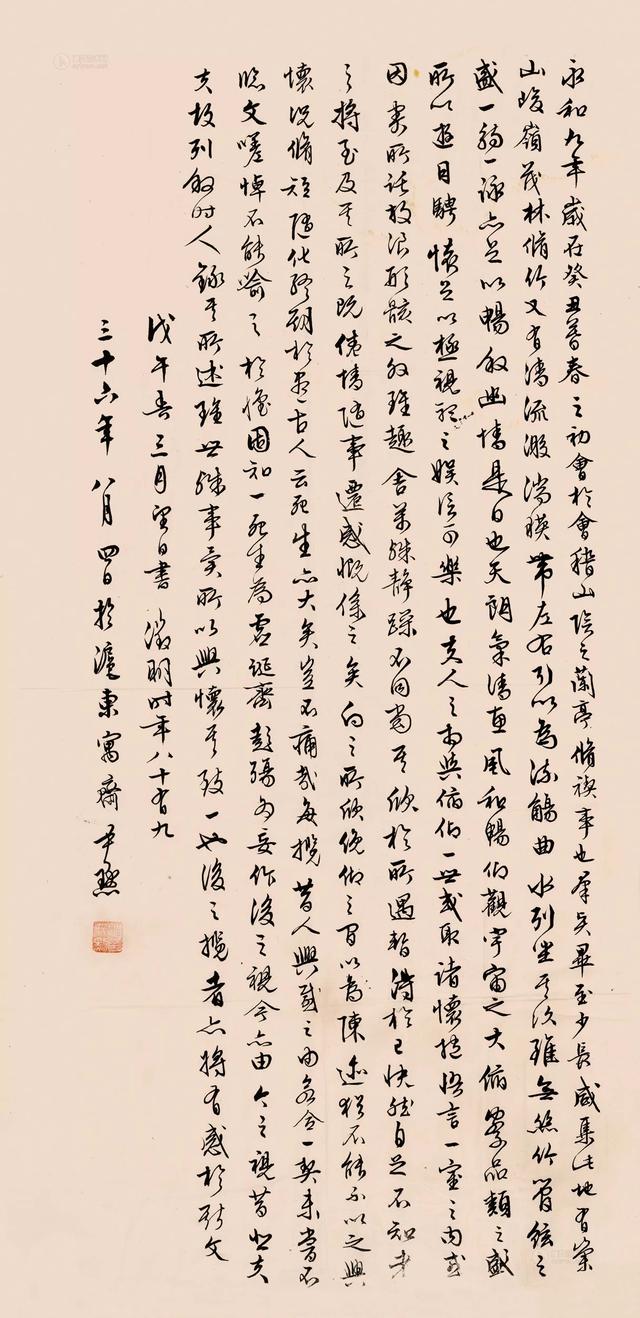 永和九年歲在癸丑暮春之初會於會稽山陰之蘭亭脩禊事也羣賢畢至少長咸集此地有崇
山峻嶺茂林脩竹又有清流激湍暎帶左右引以為流觴曲水列坐其次雖無絲竹管絃之
盛一觴一詠亦足以暢敘幽情是日也天朗氣清惠風和暢仰觀宇宙之大俯察品類之盛
所以遊目騁懷足以極視聽之娛信可樂也夫人之相與俯仰一世或取諸懷抱悟言一室之內或
因寄所託放浪形骸之外雖趣舍萬殊靜躁不同當其欣於所遇暫得於己快然自足不知老
之將至及其所之既倦情隨事遷感慨係之矣向之所欣俛仰之間以為陳迹猶不能不以之興
懷況脩短隨化終期於盡古人云死生亦大矣豈不痛哉每攬昔人興感之由若合一契未嘗不
臨文嗟悼不能喻之於懷固知一死生為虛誕齊彭殤為妄作後之視今亦由今之視昔悲夫
夫故列敘時人錄其所述雖世殊事異所以興懷其致一也後之攬者亦將有感於斯文
戊午春三月望日書 徵明時年八十有九
三十六年八月四日於滬東寓齋 尹默